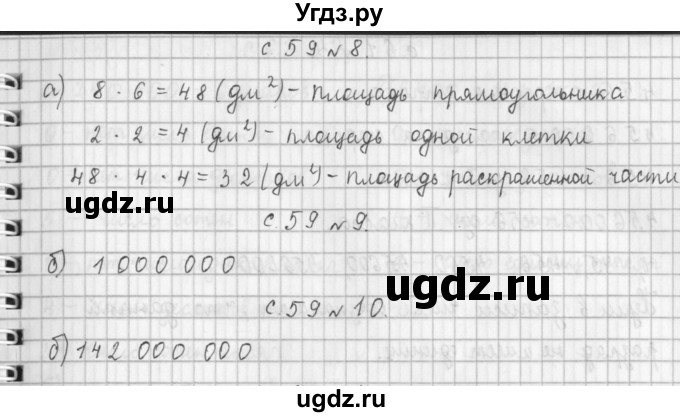 Угдз.ру
с. 59 № 8.
а) 8 · 6 = 48 (дм²) – площадь прямоугольника
2 · 2 = 4 (дм²) – площадь одной клетки
48 · 4 · 4 = 32 (дм²) – площадь раскрашенной части
ugdz.ru
с. 59 № 9.
ugdz.ru
б) 1 000 000
с. 59 № 10.
ugdz.ru
б) 142 000 000
ugdz.ru